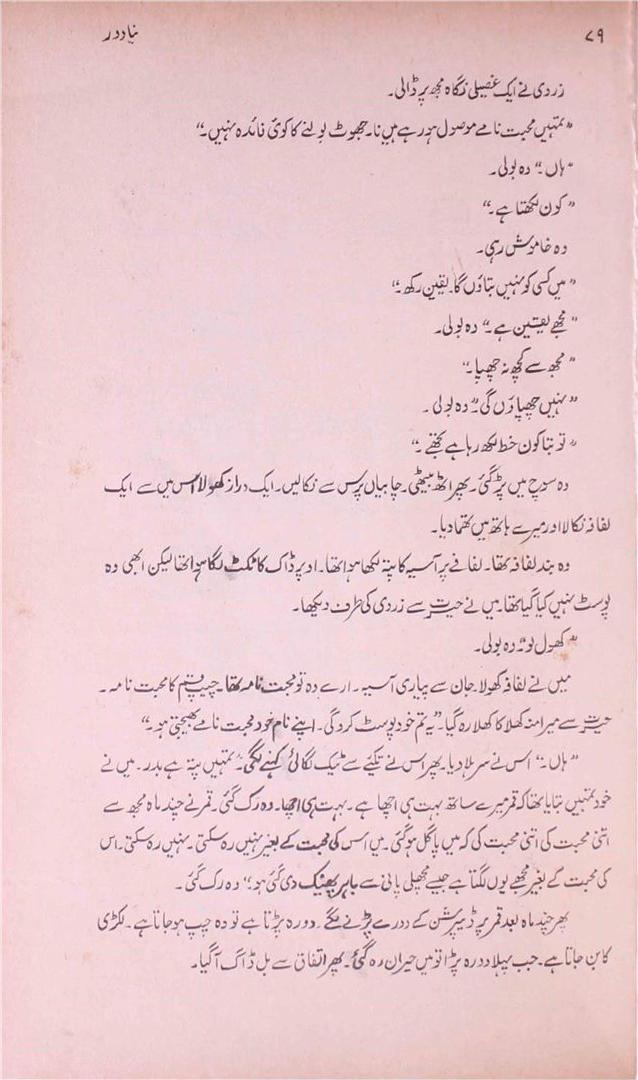 ۷۹
نیا دور
زردی نے ایک غصیلی نگاہ مجھ پر ڈالی۔
”تمہیں محبت نامے موصول ہو رہے ہیں نا۔ جھوٹ بولنے کا کوئی فائدہ نہیں۔“
”ہاں۔“ وہ بولی۔
”کون لکھتا ہے۔“
وہ خاموش رہی۔
”میں کسی کو نہیں بتاؤں گا۔ یقین رکھ۔“
”مجھے یقین ہے۔“ وہ بولی۔
”مجھ سے کچھ نہ چھپا۔“
”نہیں چھپاؤں گی۔“ وہ بولی۔
”تو بتا کون خط لکھ رہا ہے تجھے۔“
وہ سوچ میں پڑ گئی۔ پھر اٹھ بیٹھی۔ چابیاں پرس سے نکالیں۔ ایک دراز کھولا اس میں سے ایک
لفافہ نکالا اور میرے ہاتھ میں تھما دیا۔
وہ بند لفافہ تھا۔ لفافے پر آسیہ کا پتہ لکھا ہوا تھا۔ اوپر ڈاک کا ٹکٹ لگا ہوا تھا لیکن ابھی وہ
پوسٹ نہیں کیا گیا تھا۔ میں نے حیرت سے زردی کی طرف دیکھا۔
”کھول لو“۔ وہ بولی۔
میں نے لفافہ کھولا۔ جان سے پیاری آسیہ۔ ارے وہ تو محبت نامہ تھا۔ چیپ قسم کا محبت نامہ۔
حیرت سے میرا منہ کھلا کا کھلا رہ گیا۔ ”یہ تم خود پوسٹ کرو گی۔ اپنے نام خود محبت نامے بھیجتی ہو۔“
”ہاں۔“ اس نے سر ہلا دیا۔ پھر اس نے تکیئے سے ٹیک لگالی کہنے لگی۔ ”تمہیں پتہ ہے بدر۔ میں نے
خود تمہیں بتایا تھا کہ قمر میرے ساتھ بہت ہی اچھا ہے۔ بہت ہی اچھا۔ وہ رک گئی۔ قمر نے چند ماہ مجھ سے
اتنی محبت کی اتنی محبت کی کہ میں پاگل ہو گئی۔ میں اس کی محبت کے بغیر نہیں رہ سکتی۔ نہیں رہ سکتی۔ اس
کی محبت کے بغیر مجھے یوں لگتا ہے جیسے مچھلی پانی سے باہر پھینک دی گئی ہو۔“ وہ رک گئی۔
پھر چند ماہ بعد قمر پر ڈیپرشن کے دورے پڑنے لگے۔ دورہ پڑتا ہے تو وہ چپ ہو جاتا ہے۔ لکڑی
کا بن جاتا ہے۔ جب پہلا دورہ پڑا تو میں حیران رہ گئی۔ پھر اتفاق سے بل ڈاگ آ گیا۔